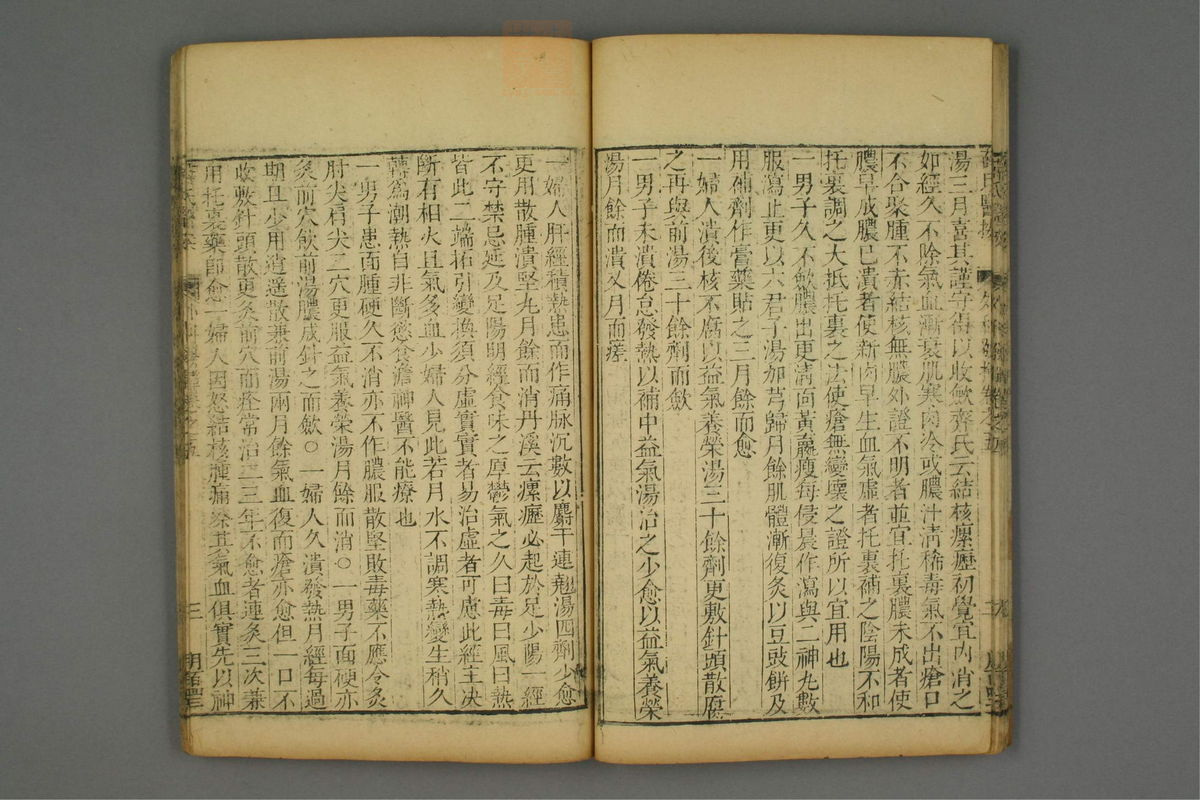 湯三月喜其謹守得以收斂齊氏云結核瘰癧初覺宜內消之
如經久不除氣血漸衰肌寒肉冷或膿汁淸稀毒氣不出瘡口
不合聚腫不赤結核無膿外證不明者並宜托裏膿未成者使
膿早成膿已潰者使新肉早生血氣虛者托裏補之陰陽不和
托裏調之大抵托裏之法使瘡無變壞之證所以宜用也
一男子久不斂膿出更淸面黃羸瘦每侵晨作瀉與二神丸數
服瀉止更以六君子湯加芎歸月餘肌體漸復灸以豆豉餅及
用補劑作膏藥貼之三月餘而愈
一婦人潰後核不腐以益氣養榮湯三十餘劑更敷針頭散腐
之再與前湯三十餘劑而斂
一男子未潰倦怠發熱以補中益氣湯治之少愈以益氣養榮
湯月餘而潰又月而痊
一婦人肝經積熱患而作痛脉沉數以射干連翹湯四劑少愈
更用散腫潰堅丸月餘而消丹溪云瘰癧必起於足少陽一經
不守禁忌延及足陽明經食味之厚鬱氣之久曰毒曰風曰熱
皆此二端拓引變換須分虛實實者易治虛者可慮此經主决
斷有相火且氣多血少婦人見此若月水不調寒熱變生稍久
轉爲潮熱自非斷慾食澹神醫不能療也
一男子患面腫硬久不消亦不作膿服散堅敗毒藥不應令灸
肘尖肩尖二穴更服益氣養榮湯月餘而消○一男子面硬亦
灸前穴飲前湯膿成針之而斂○一婦人久潰發熱月經每過
期且少用逍遥散兼前湯兩月餘氣血復而瘡亦愈但一口不
收敷針頭散更灸前穴而痊常治二三年不愈者連灸三次兼
用托裏藥即愈一婦人因怒結核腫痛察其氣血俱實先以神
三